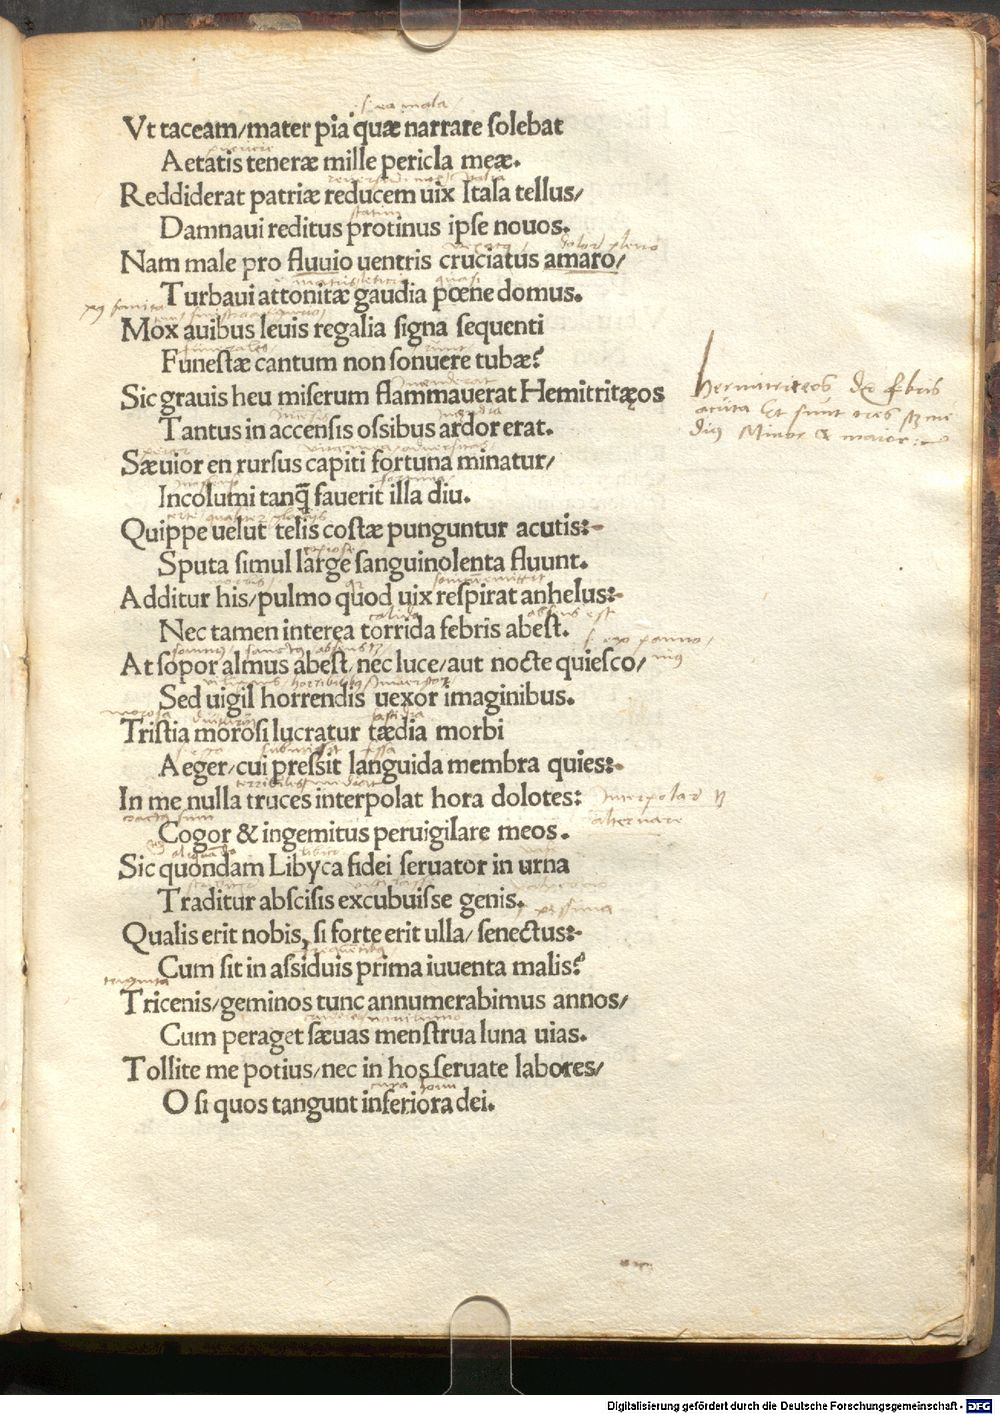 s. ea mala
Vt taceam/mater pia quæ narrare solebat
Aetatis teneræ mille pericla meæ.
Reddiderat patriæ reducem uix Itala tellus/
statim
Damnaui reditus protinus ipse nouos.
Nam male pro fluuio uentris cruciatus amaro/
quasi
Turbaui attonitæ gaudia pœne domus.
Mox auibus leuis regalia signa sequenti
funerales
Funestæ cantum non sonuere tubæ?
Sic grauis heu miserum flammauerat Hemitritęos
Tantus in accensis ossibus ardor erat.
Sæuior en rursus capiti fortuna minatur/
fortuna
Incolumi tanq̃ fauerit illa diu.
Quippe uelut telis costæ punguntur acutis:
copiose
Sputa simul large sanguinolenta fluunt.
Additur his/pulmo quod uix respirat anhelus:
calida absens est
Nec tamen interea torrida febris abest.
somnus sanctus
At sopor almus abest/nec luce/aut nocte quiesco/
Sed uigil horrendis uexor imaginibus.
fastidia
Tristia morosi lucratur tædia morbi
fessa
Aeger/cui pressit languida membra quies:
In me nulla truces interpolat hora dolotes:
Cogor & ingemitus peruigilare meos.
Sic quondam Libyca fidei seruator in urna
Traditur abscisis excubuisse genis.
Qualis erit nobis, si forte erit ulla/ senectus:
Cum sit in assiduis prima iuuenta malis?
triginta
Tricenis/geminos tunc annumerabimus annos/
Cum peraget sæuas menstrua luna uias.
Tollite me potius/nec in hos seruate labores/
cura
O si quos tangunt inferiora dei.
acuta Et sunt
Minor & maior
alternare
Digitalisierung gefördert durch die Deutsche Forschungsgemeinschaft - DFG